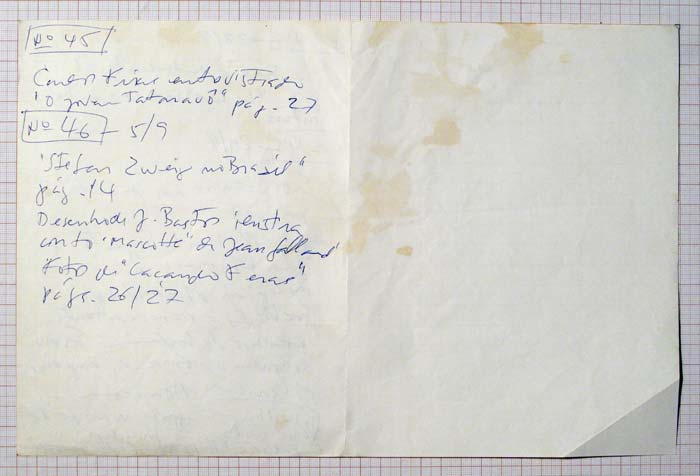 Nº 45
entrevistado
"O jovem Tataravô" pág. 27
Nº 46 - 5/9
"Stefan Zweig no Brasil"
pág. 14
Desenho de J. Bastos ilustra
conto "Mascotte" de Jean Galland
Foto de "Caçando Feras"
págs. 26/27